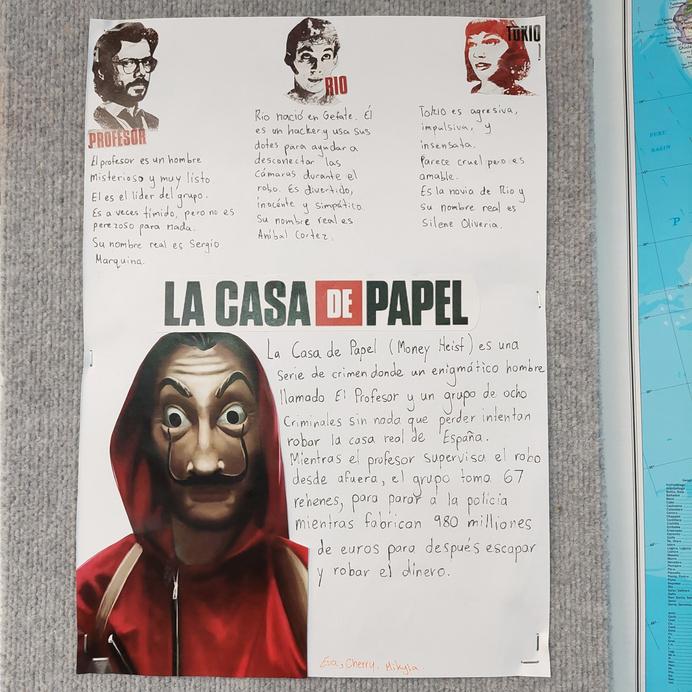 PROFESOR
El profesor es un hombre
misterioso y muy listo
El es el líder del grupo.
Es a veces tímido, pero no es
perezoso para nada.
Su nombre real es Sergio
Marquina.
RIO
Rio nació en Getafe. Él
es un hacker y usa sus
dotes para ayudar a
desconectar las
cámaras durante el
robo. Es divertido,
inocente y simpático.
Su nombre real es
Aníbal Cortez.
TOKIO
Tokio es agresiva,
impulsiva, y
insensata.
Parece cruel pero es
amable.
Es la novia de Rio y
su nombre real es
Silene Oliveria.
LA CASA DE PAPEL
La Casa de Papel (Money Heist) es una
serie de crimen donde un enigmático hombre
llamado El Profesor y un grupo de ocho
criminales sin nada que perder intentan
robar la casa real de España.
Mientras el profesor supervisa el robo
desde afuera, el grupo toma 67
rehenes, para parar a la policía
mientras fabrican 980 milliones
de euros para después escapar
y robar el dinero.
Eva, Cherry, Mikyla
PERU
BASIN
P